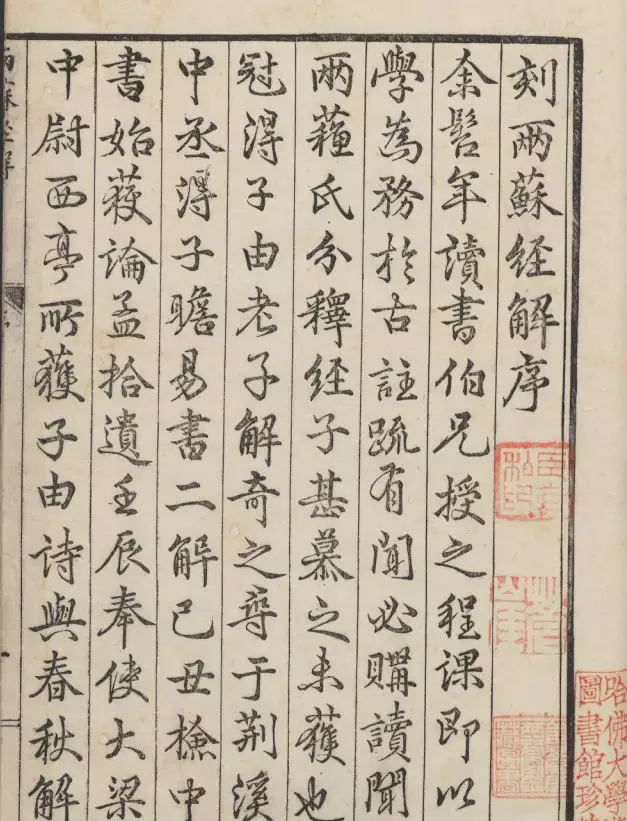 刻兩蘇經解序
余髫年讀書伯兄授之程課即以
學為務於古註疏有聞必購讀聞
兩蘓氏分釋經子甚慕之未獲也
冠淂子由老子解奇之尋于荆溪
中丞淂子瞻易書二解已丑檢中
書始获論孟拾遺壬辰奉使大梁
中尉西亭所獲子由詩與春秋解
哈佛大學
圖書館珍